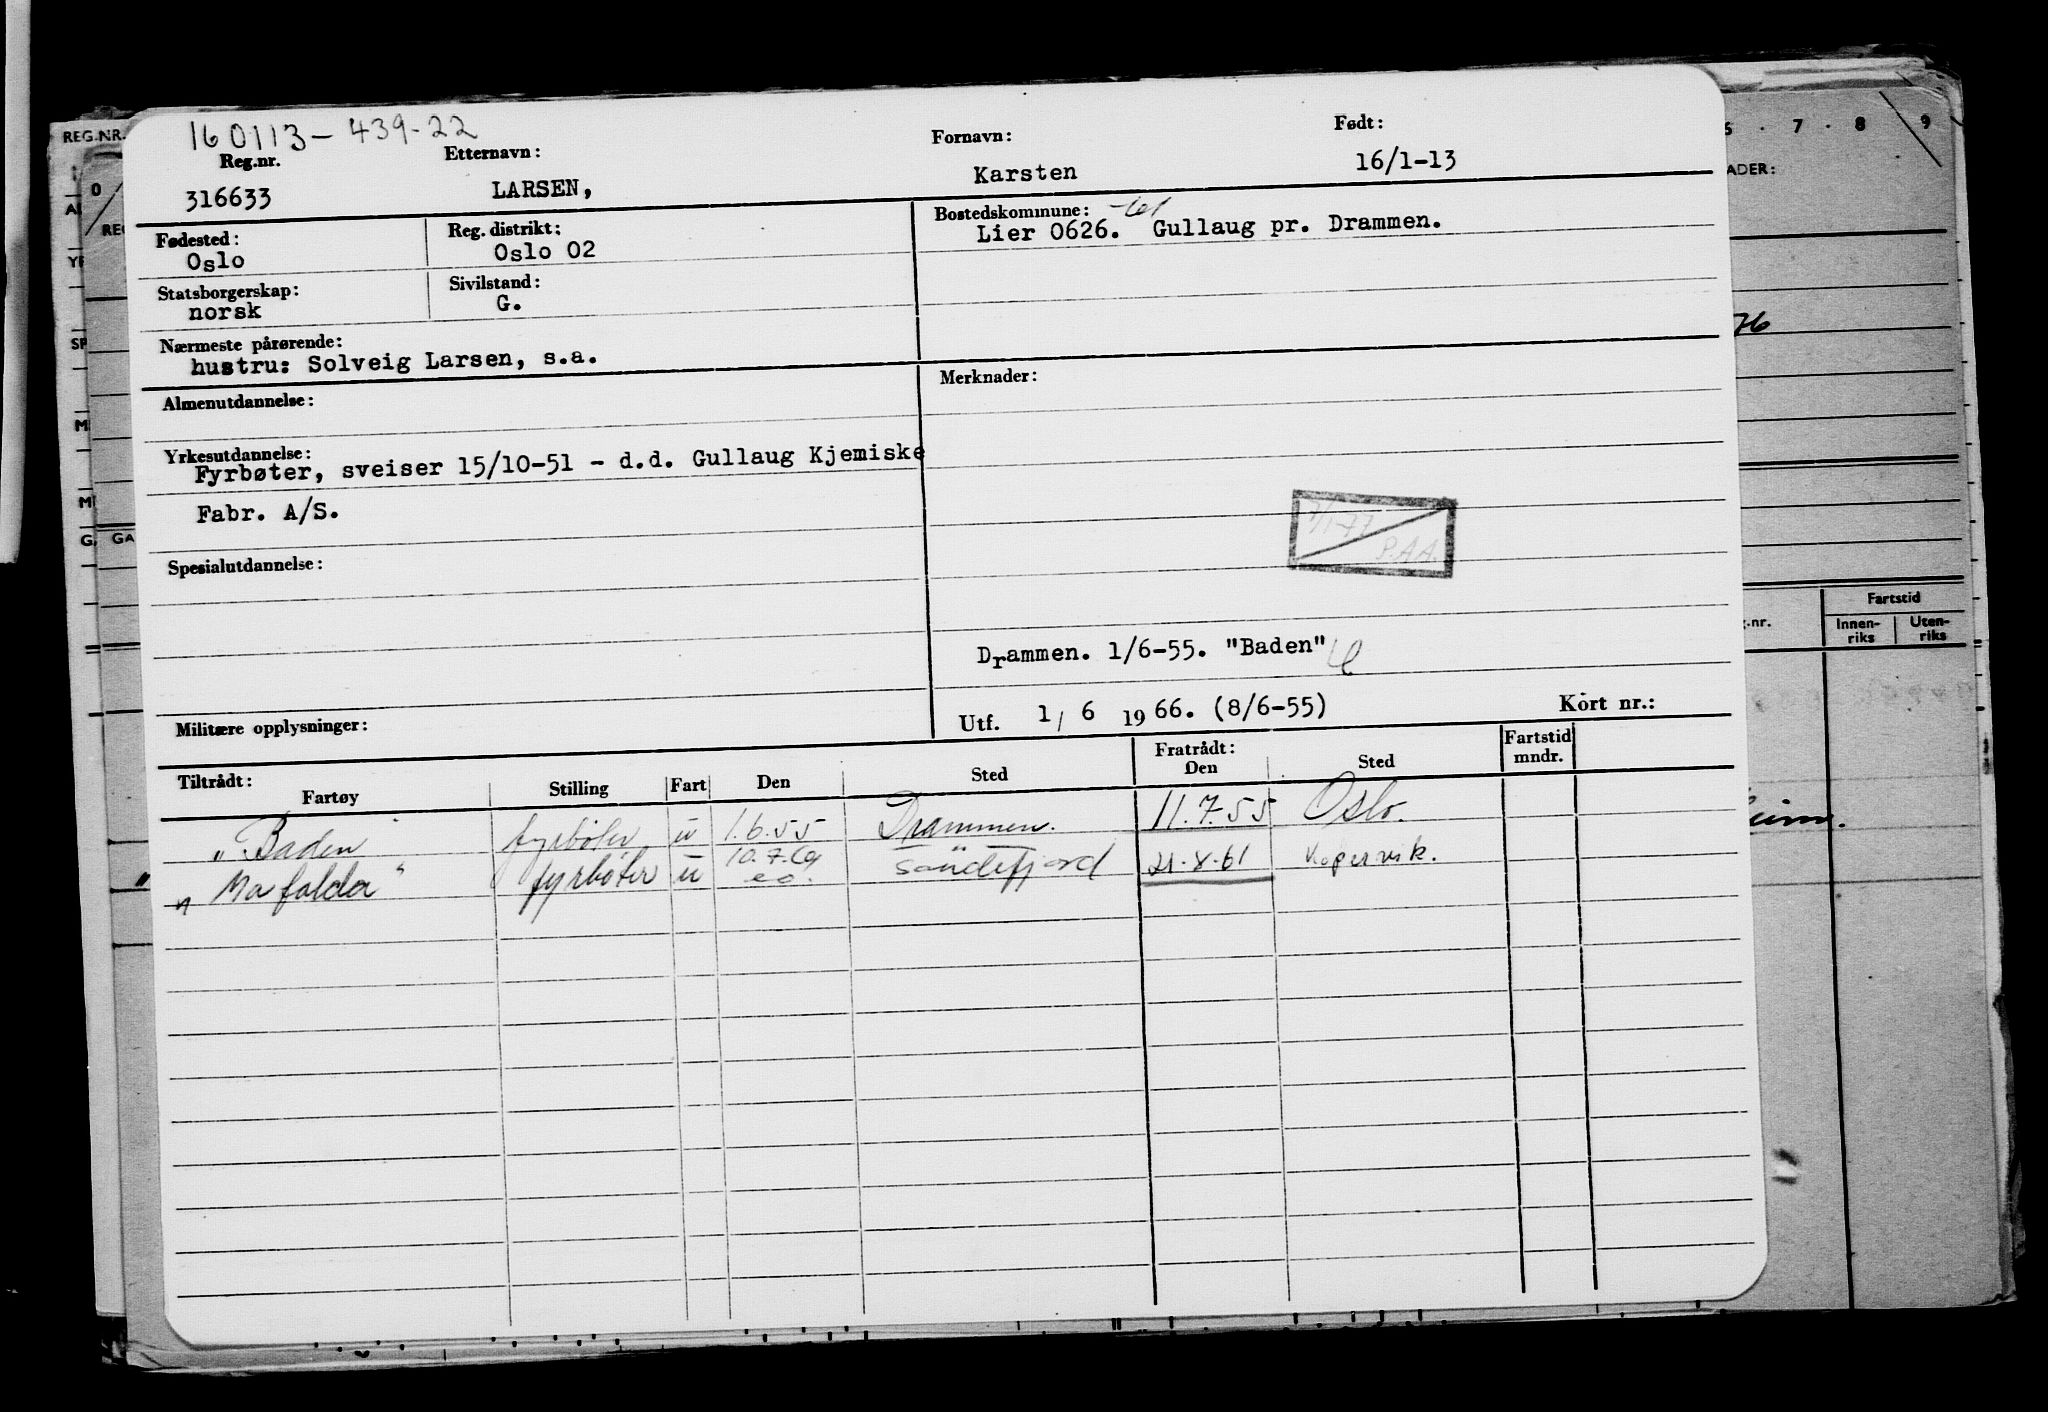 160113-439-22
Reg.nr. Etternavn: Fornavn: Født:
316633 LARSEN, Karsten 16/1-13
Fødested: Reg. distrikt: Bostedskommune:
Oslo Oslo 02 Lier 0626. Gullaug pr. Drammen.
Statsborgerskap: Sivilstand:
norsk G.
Nærmeste pårørende:
hustru: Solveig Larsen, s.a.
Almenutdannelse: Merknader:
Yrkesutdannelse:
Fyrbøter, sveiser 15/10-51 - d.d. Gullaug Kjemiske
Fabr. A/S.
7/1-77
P.A.A.
Spesialutdannelse:
Drammen. 1/6-55. "Baden"
Militære opplysninger: Utf. 1/ 6 1966. (8/6-55) Kort nr.:
Tiltrådt: Fratrådt: Fartstid
Fartøy Stilling Fart Den Sted Den Sted mndr.
"Baden fyrbøter u 1.6.55 Drammen. 11.7.55 Oslo.
"Mafalda" fyrbøter u 10.7.61 Sandefjord 21.8.61 Kopervik.
REG.NR.
0
7 . 8 . 9
ADER:
76
Fartstid
Innen-riks Uten-riks